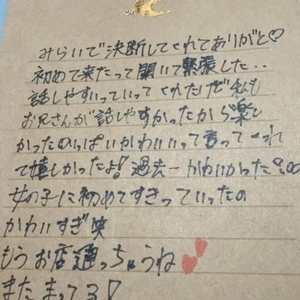 みらいで決断してくれてありがと♡
初めて来たって聞いて緊張した..
話しやすいっていってくれたけど私も
お兄さんが話しやすかったから楽し
かったのいっぱいかわいいって言ってくれ
て嬉しかったよ！過去一かわいかった
女の子に初めてすきっていったの
かわいすぎ笑
もうお店通っちゃうね
またまってる♡